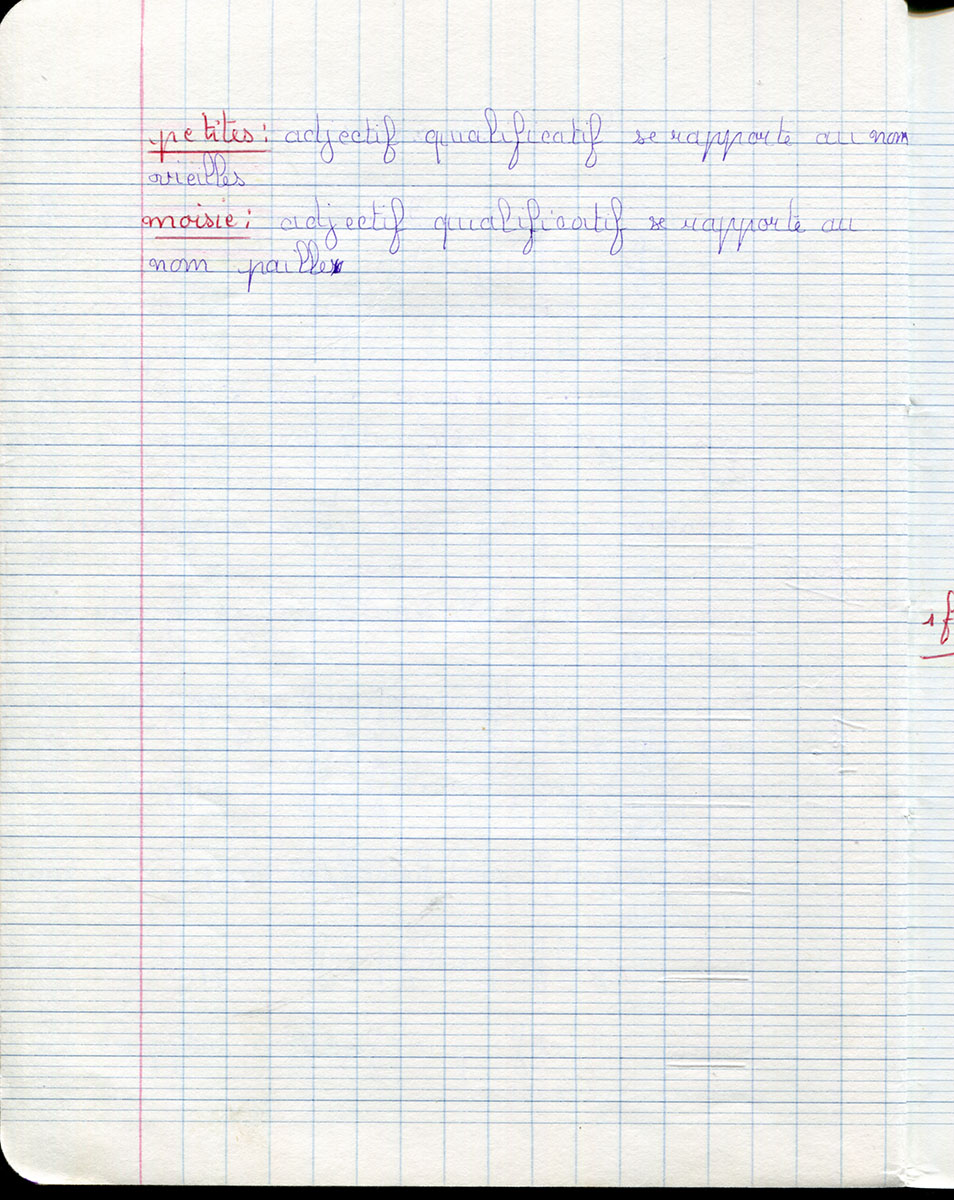 petites : adjectif qualificatif se rapporte au nom
vieilles
moisie : adjectif qualificatif se rapporte au
nom paille